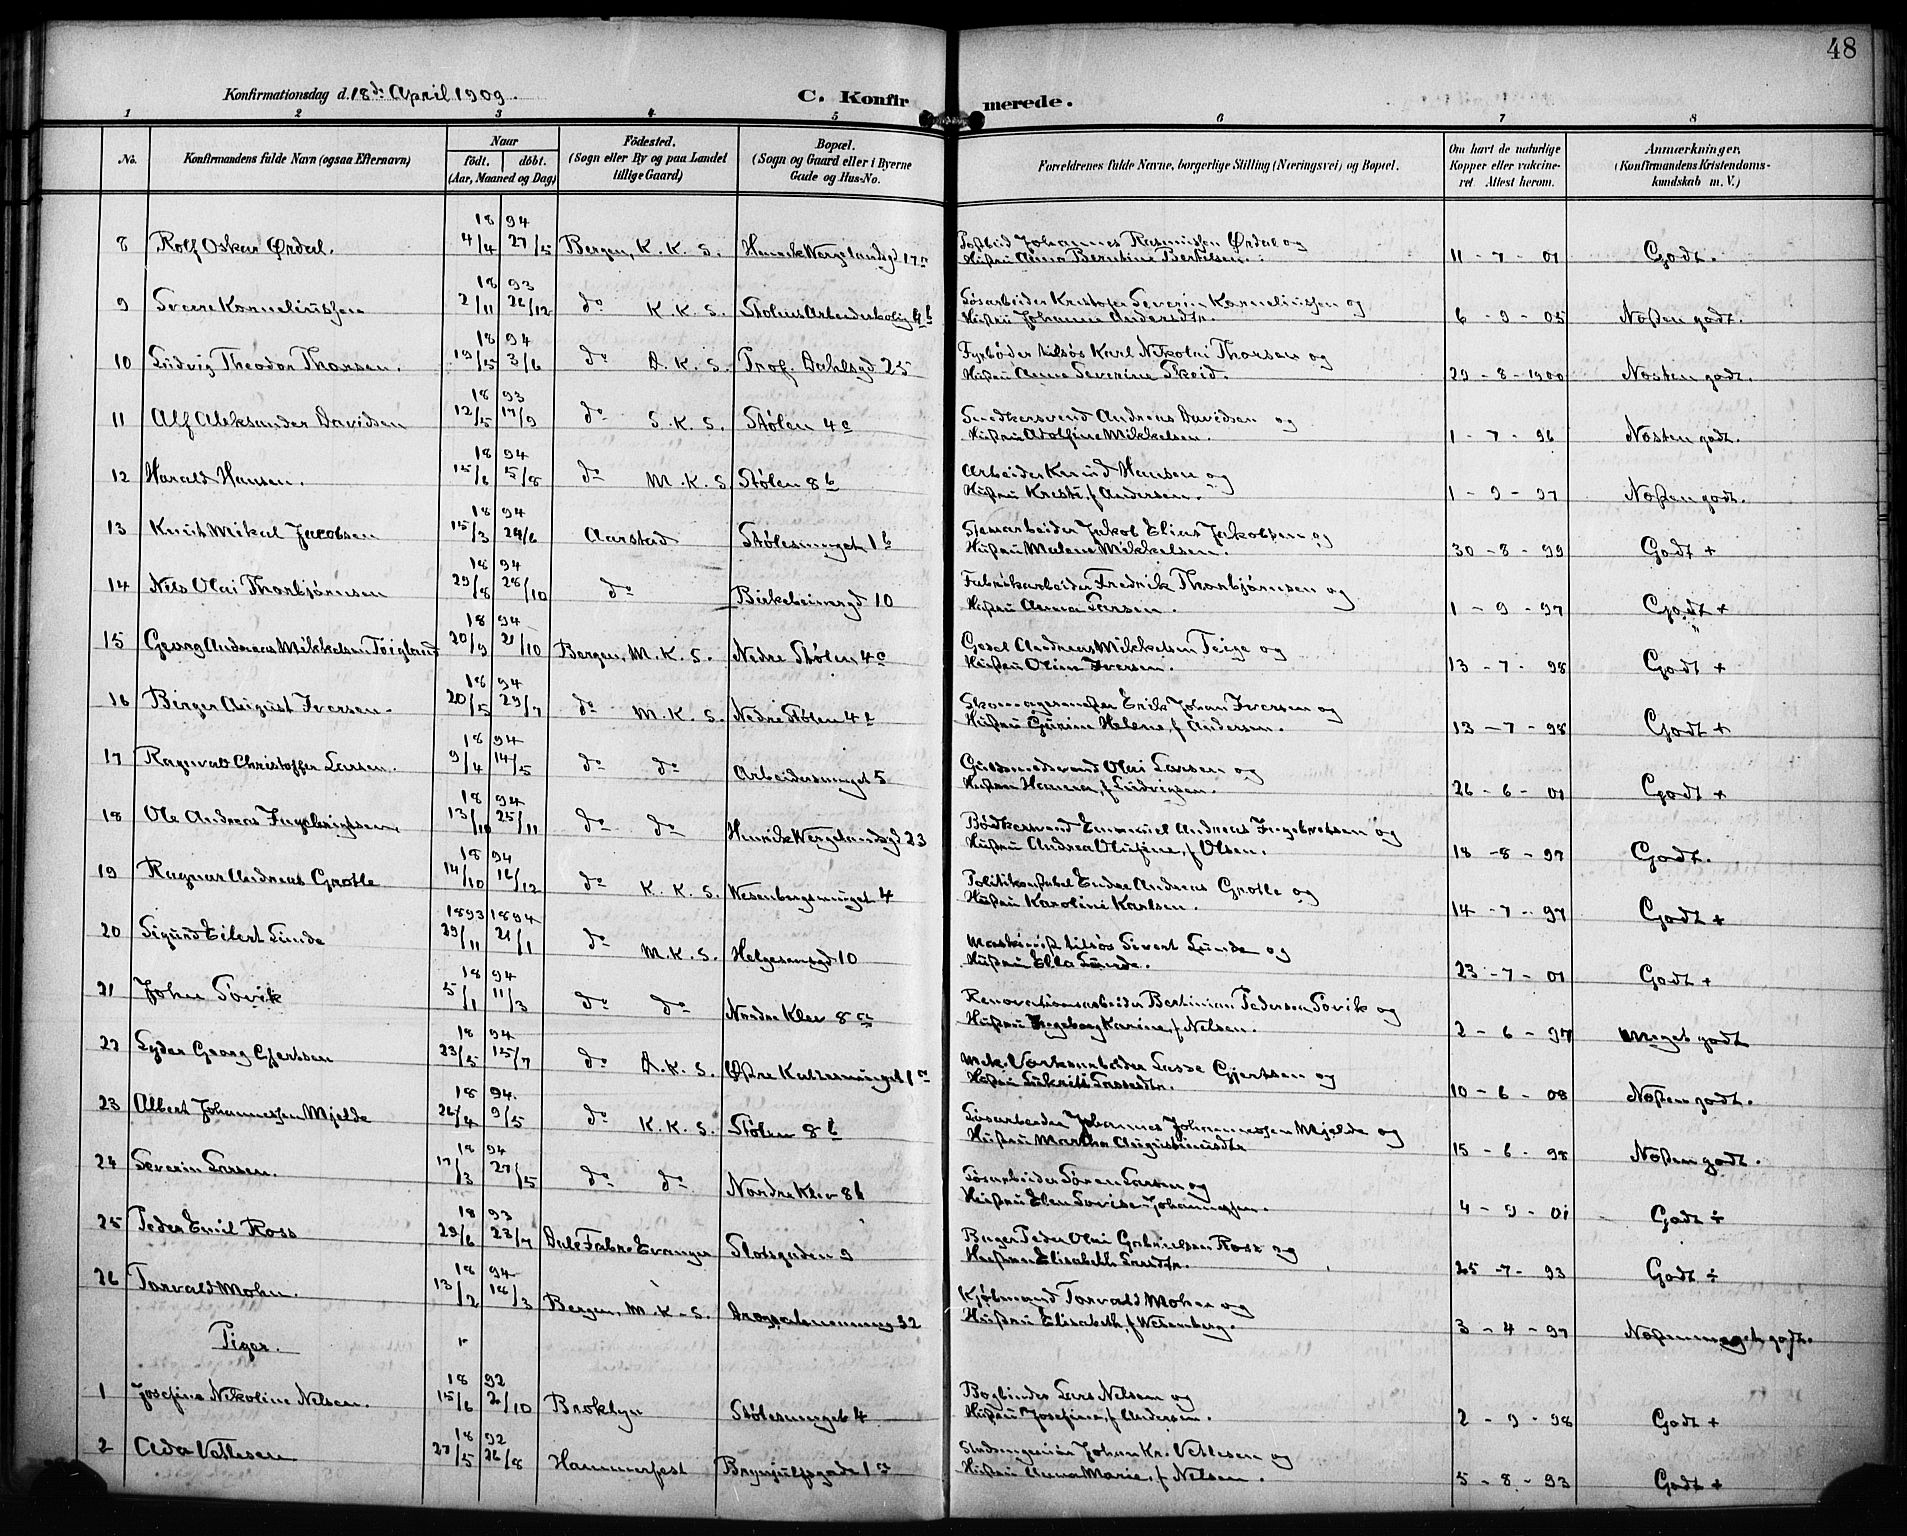 48
Konfirmationsdag d. 18de April 1909.
C. Konfirmerede.
1 2 3 4 5 6 7 8
No. Konfirmandens fulde Navn (ogsaa Efternavn) Naar født. døbt. (Aar, Maaned og Dag) Fødested. (Sogn eller By og paa Landet tillige Gaard) Bopæl. (Sogn og Gaard eller i Byerne Gade og Hus-No. Forældrenes fulde Navne, borgerlige Stilling (Næringsvei) og Bopæl. Om havt de naturlige Kopper eller vakcineret Attest herom. Anmærkninger, (Konfirmandens Kristendomskundskab m. V.)
18 94
8 Rolf Oskar Ørdal. 4/4 27/5 Bergen, K. K. S. Henrik Wergelandsgd 17a Postbud Johannes Rasmussen Ørdal og
Hustru Anna Berntine Bertilsen. 11 - 7 - 01 Godt.
18 93
9 Sverre Korneliussen 2/11 26/12 do K. K. S. Stølens Arbeiderbolig 4b Løsarbeider Kristofer Severin Korneliussen og
Hustru Johanne Andersdtr. 6 - 9 - 05 Næsten godt.
18 94
10 Ludvig Theodor Thorsen. 19/5 3/6 do D. K. S. Prof. Dahlsgd 25 Fyrbøder tilsøs Karl Nikolai Thorsen og
Hustru Anne Severine Skeid. 29 - 8 - 1900 Næsten godt.
18 93
11 Alf Aleksander Davidsen 12/5 17/9 do S. K. S. Stølen 4c Snedkersvend Andreas Davidsen og
Hustru Adolfine Mikkelsen. 1 - 7 - 96 Næsten godt.
18 94
12 Harald Hansen. 15/6 5/8 do M. K. S Stølen 8b Arbeider Knud Hansen og
Hustru Kresti, f Andersen. 1 - 9 - 97 Næsten godt.
18 94
13 Knut Mikal Jacobsen 15/3 24/6 Aarstad Stølesmuget 1b Stenarbeider Jakob Elias Jakobsen og
Hustru Malene Mikkelsen. 30 - 8 - 99 Godt +
18 94
14 Nels Olai Thorbjørnsen 29/8 28/10 do Birkebeinergd 10 Fabrikarbeider Fredrik Thorbjørnsen og
Hustru Anna Larsen. 1 - 9 - 97 Godt +
18 94
15 Georg Andreas Mikkelsen Teigland 20/9 21/10 Bergen, M. K. S. Nedre Stølen 4c Gesel Andreas Mikkelsen Teige og
Hustru Oline Iversen. 13 - 7 - 98 Godt +
18 94
16 Birger August Iversen 20/5 29/7 do M. K. S. Nedre Stølen Skomagermester Erik Johan Iversen og
Hustru Gurine Helene, f Andersen. 13 - 7 - 98 Godt +
18 94
17 Ragnvald Christoffer Larsen. 9/4 14/5 do do Arbeidersmuget 5 Guldsmedsvend Olai Larsen og
Hustru f Ludvigsen. 26 - 6 - 01 Godt +
18 94
18 Ole Andreas Ingebrigtsen, 13/10 25/11 do do Henrik Wergelandsgd 23 Bødkersvend Emmanuel Andreas Ingebretsen og
Hustru Andrea Olufine, f Olsen. 18 - 8 - 97 Godt.
18 94
19 Ragnar Andreas Grotle 14/10 16/12 do K. K. S. Wesenbergsmuget 4 Politikonstabel Endre Andreas Grotle og
Hustru Karoline Karlsen. 14 - 7 - 97 Godt +
1893 1894
20 Sigurd Eilert Lunde 29/11 21/1 do M. K. S. Helgesensgd 10 Maskinist tilsøs Sivert Lunde og
Hustru Ella Lunde. 23 - 7 - 01 Godt +
18 94
21 John Søvik 5/1 11/3 do do Nordre Klev 8a Renovationsarbeider Bertinius Pedersen Søvik og
Hustru Ingeborg Karine, f Nelsen. 2 - 6 - 97 Meget godt
18 94
22 Lyder Georg Gjertsen 23/5 15/7 do D. K. S. Øvre Kattesmuget 1a Mek. Værksarbeider Lasse Gjertsen og
Hustru Lassesdtr. 10 - 6 - 08 Næsten godt.
18 94.
23 Albert Johannessen Mjelde 26/4 9/5 do K. K. S. Stølen 8b Løsarbeider Johannes Johannessen Mjelde og
Hustru Martha Augustinusdtr 15 - 6 - 98 Næsten godt.
18 94
24 Severin Larsen. 17/3 27/5 do do Nordre Klev 8b Løsarbeider Søren Larsen og
Hustru Elen Lovise Johannessen. 4 - 9 - 01 Godt ÷
18 93
25 Peder Emil Ross 29/6 23/7 Dale Fabr. Evanger Slotsgaden 9 Bager Peder Olai Gabrielsen Ross og
Hustru Elisabeth 25 - 7 - 93 Godt ÷
18 94
26 Torvald Mohn. 13/2 18/3 Bergen, M. K. S. 32 Kjøbmand Torvald Mohn og
Hustru Elisabeth, f Wesenberg. 3 - 4 - 97 Næsten meget godt.
Piger.
18 92
1 Josefine Nikoline Nelsen. 15/6 2/10 Broklyn Stølesmuget 4 Bogbinder Lars Nelsen og
Hustru Josefine, f Andersen. 2 - 9 - 98 Godt +
18 92
2 Aida Vetlesen 27/5 26/8 Hammerfest Brynjulfsgade 1a Stadsingeniør Johan Kr. Vetlesen og
Hustru Anna Marie, f Nelsen. 5 - 8 - 93 Godt +